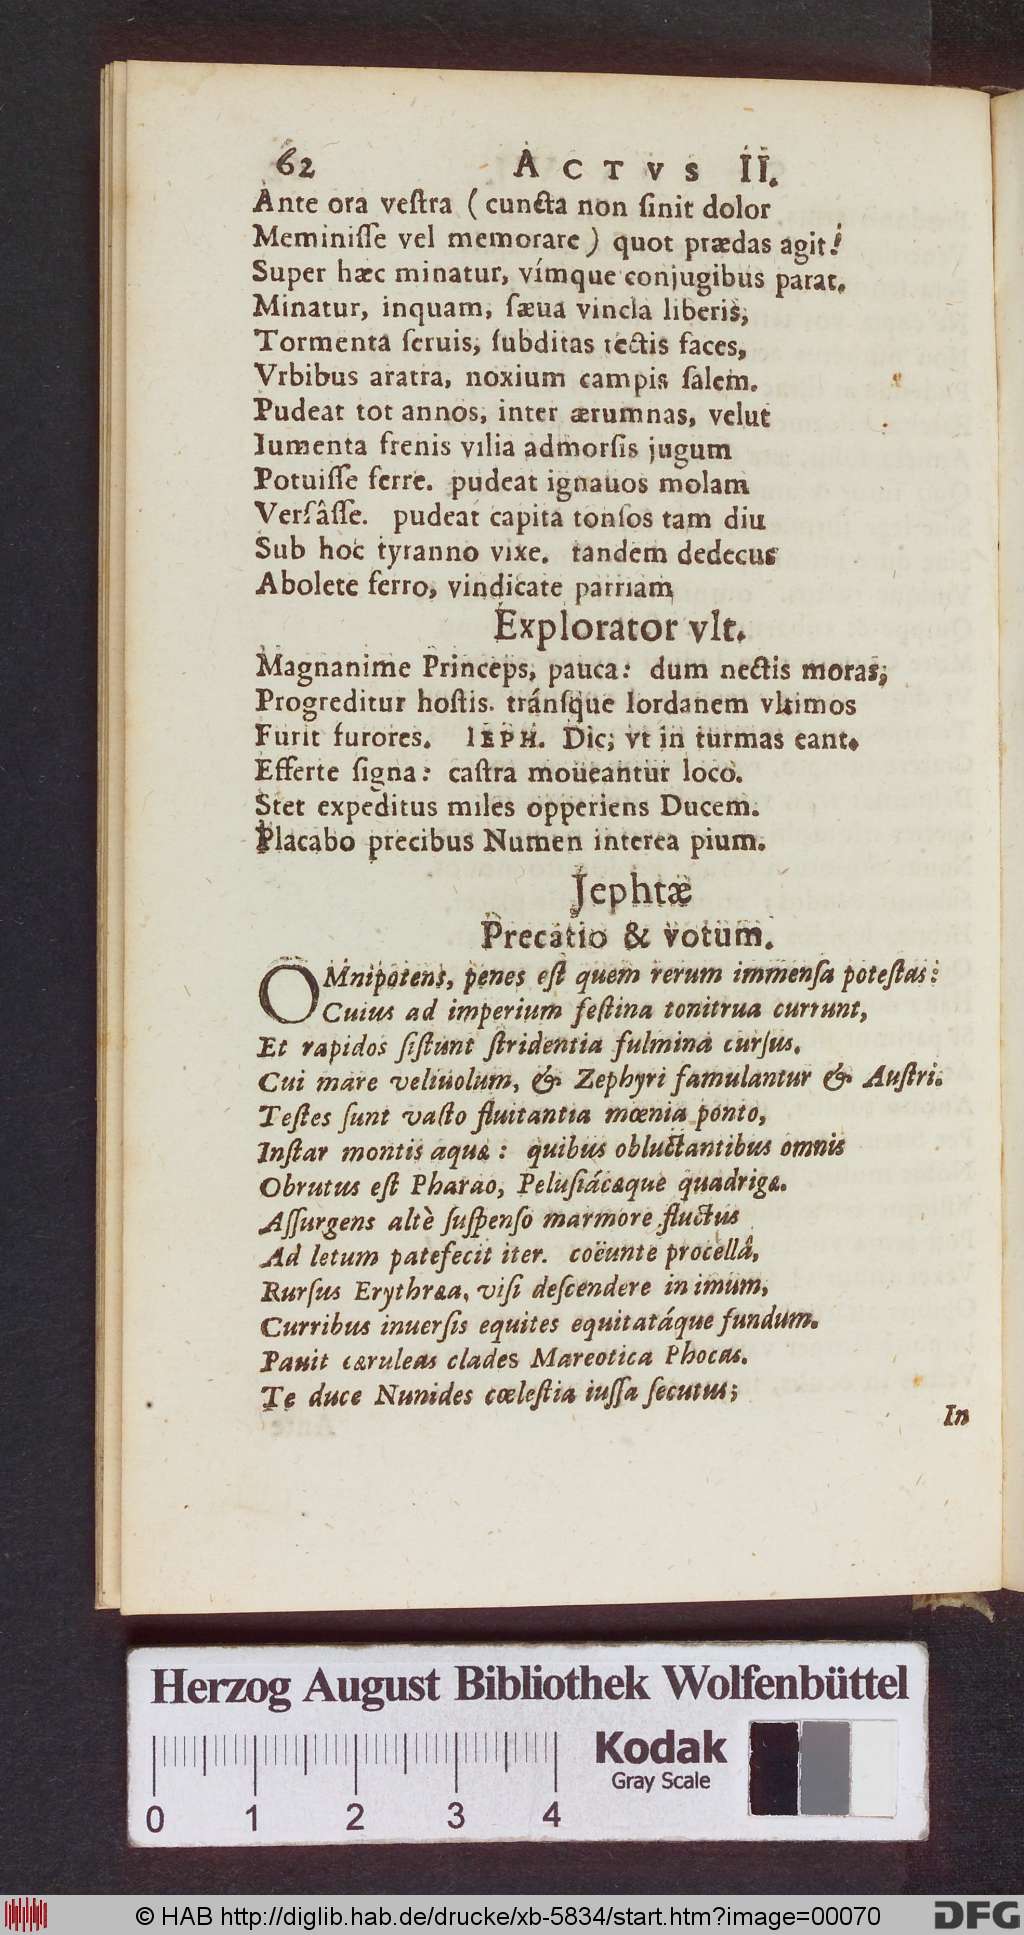 62 ACTVS II.
Ante ora veſtra ( cuncta non ſinit dolor
Meminiſſe vel memorare ) quot prædas agit!
Super hæc minatur, vímque conjugibus parat.
Minatur, inquam, ſæua vincla liberis,
Tormenta ſeruis, ſubditas tectis faces,
Vrbibus aratra, noxium campis ſalem.
Pudeat tot annos, inter ærumnas, velut
Iumenta frenis vilia admorſis jugum
Potuiſſe ferre. pudeat ignauos molam
Verſâſſe. pudeat capita tonſos tam diu
Sub hoc tyranno vixe. tandem dedecus
Abolete ferro, vindicate patriam
Explorator vlt.
Magnanime Princeps, pauca: dum nectis moras,
Progreditur hoſtis. tránſque Iordanem vltimos
Furit furores. IEPH. Dic, vt in turmas eant.
Efferte ſigna: caſtra moueantur loco.
Stet expeditus miles opperiens Ducem.
Placabo precibus Numen interea pium.
Jephtæ
Precatio & votum.
OMnipotens, penes eſt quem rerum immenſa poteſtas:
Cuius ad imperium feſtina tonitrua currunt,
Et rapidos ſiſtunt ſtridentia fulmina curſus.
Cui mare veliuolum, & Zephyri famulantur & Auſtri.
Teſtes ſunt vaſto fluitantia mœnia ponto,
Inſtar montis aquæ: quibus obluctantibus omnis
Obrutus eſt Pharao, Peluſiácæque quadrigæ.
Aſſurgens altè ſuſpenſo marmore fluctus
Ad letum patefecit iter. coëunte procellâ,
Rurſus Erythræa, viſi deſcendere in imum,
Curribus inuerſis equites equitatáque fundum.
Pauit cæruleas clades Mareotica Phocas.
Te duce Nunides cœleſtia iuſſa ſecutus;
In
Herzog August Bibliothek Wolfenbüttel
0 1 2 3 4
Kodak
Gray Scale
© HAB http://diglib.hab.de/drucke/xb-5834/start.htm?image=00070
DFG